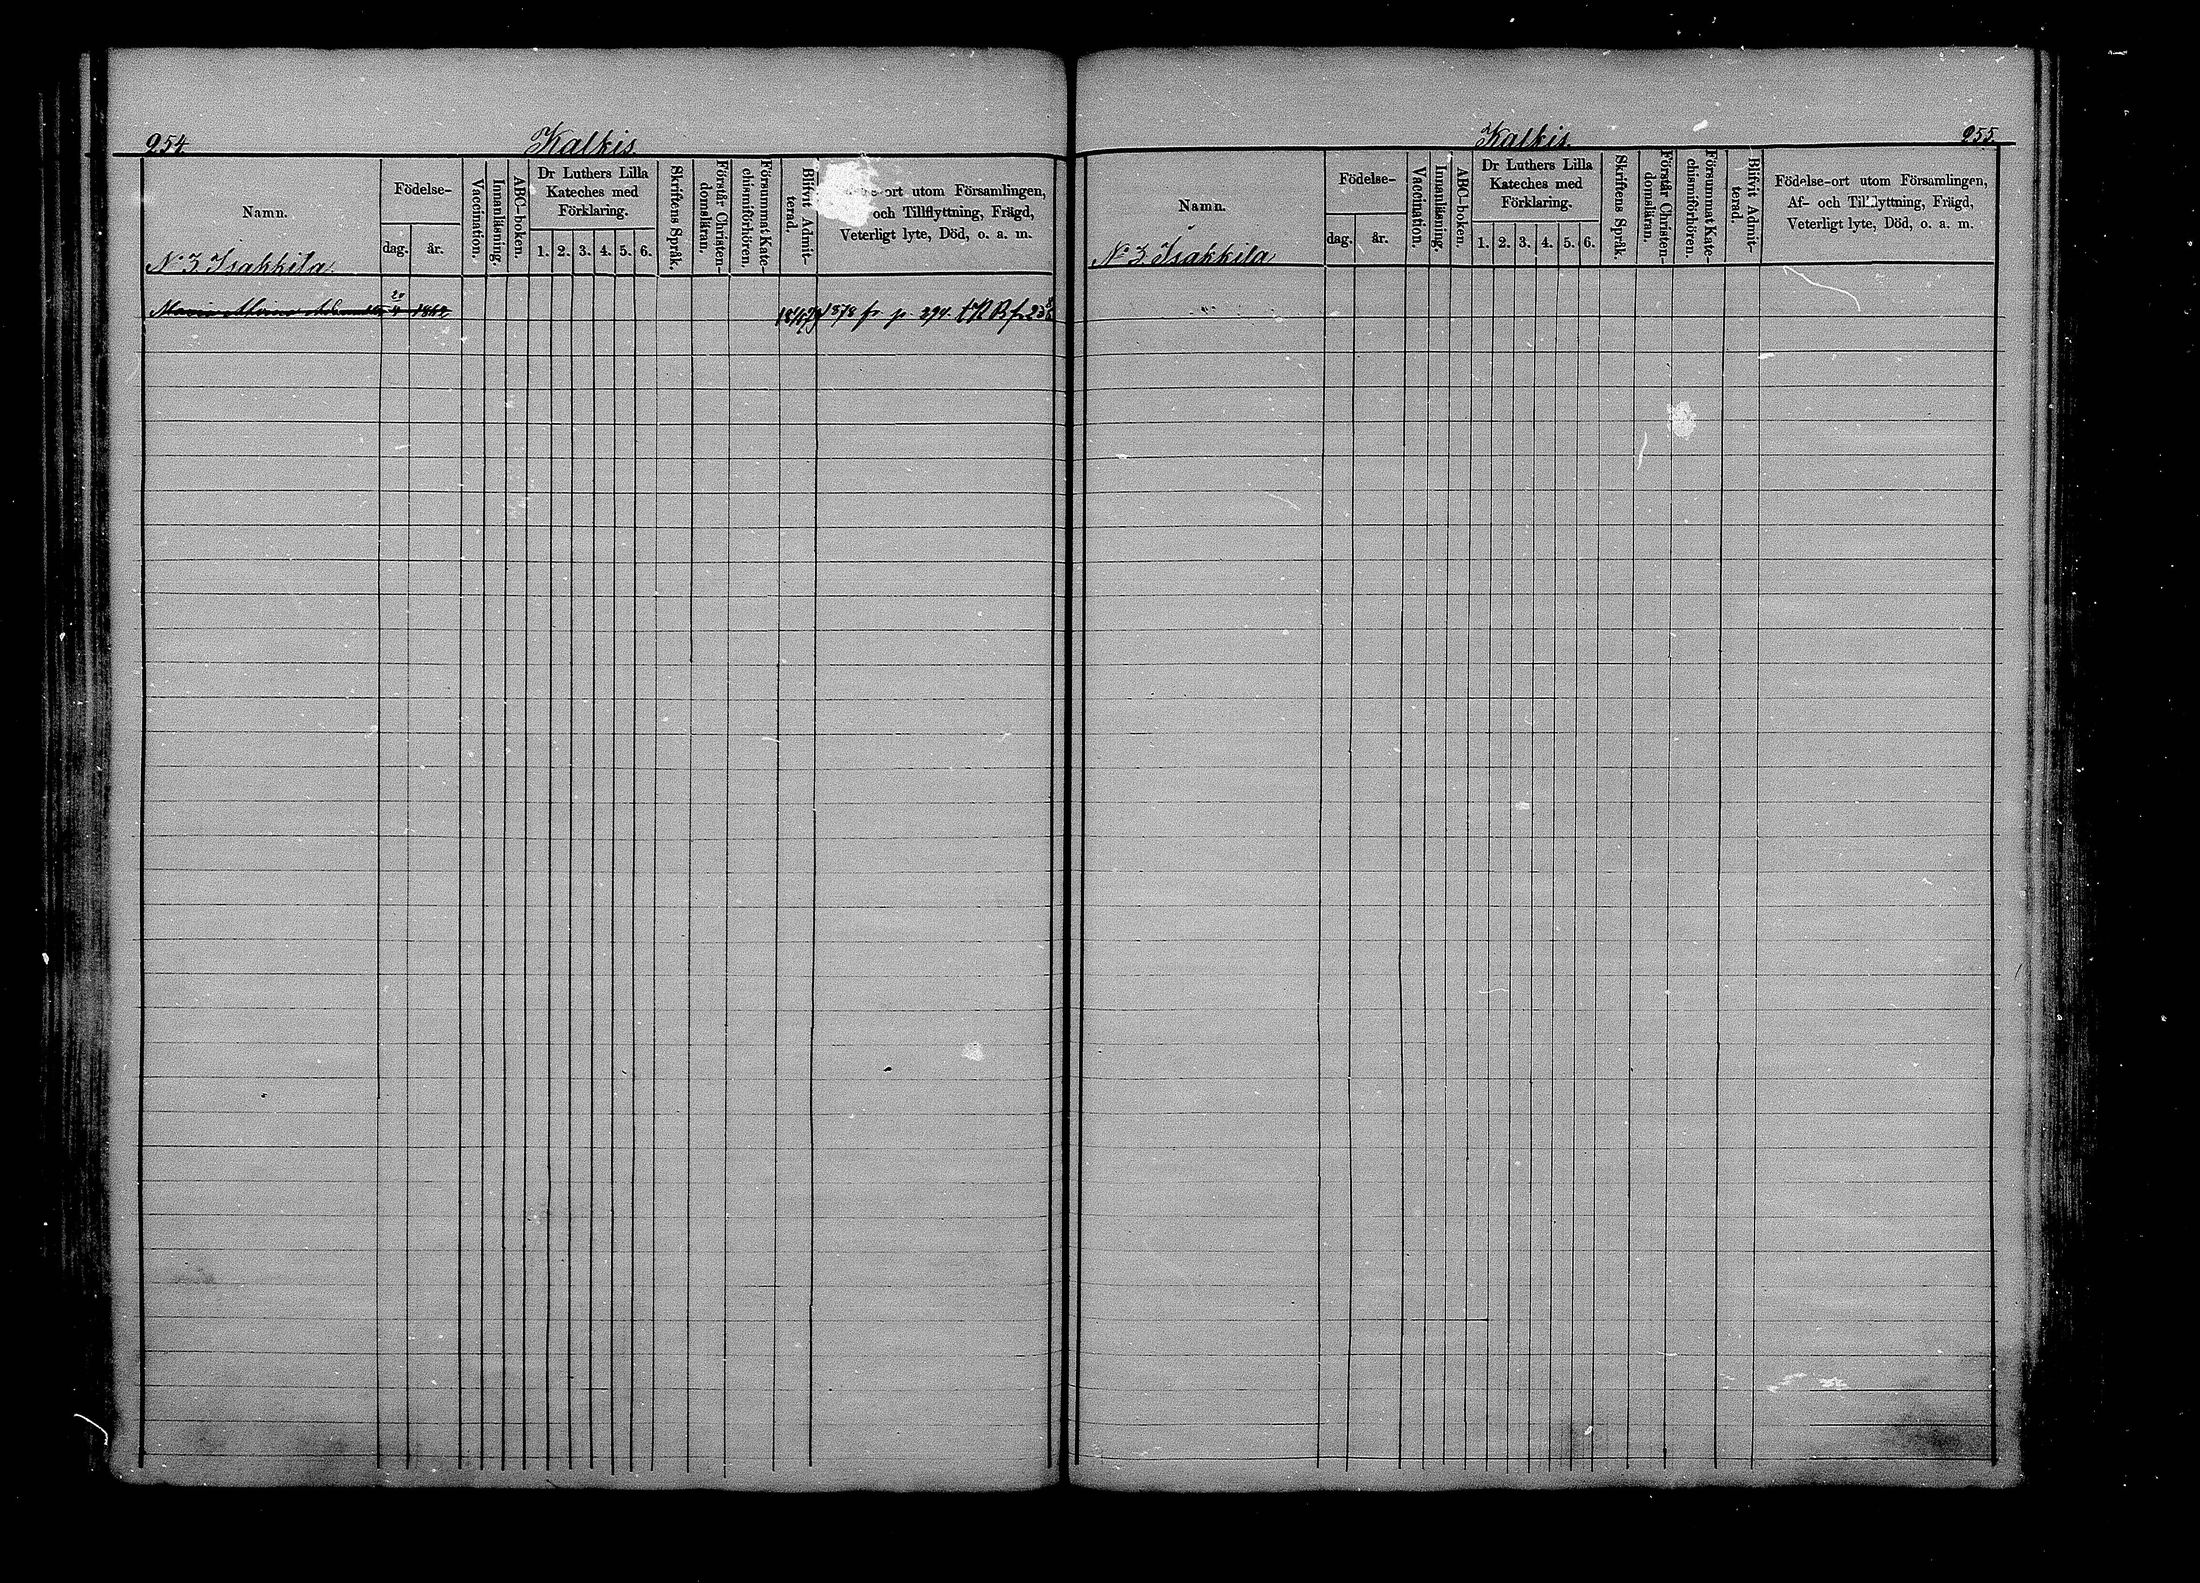 254.
Kalkis.
Namn.
Födelse-
dag.
år.
Vaccination.
Innanläsning.
ABC-boken.
Dr Luthers Lilla
Kateches med
Förklaring.
1. 2. 3. 4. 5. 6.
Skriftens Språk.
Förstår Christen-
domsläran.
Försummat Kate-
chismiförhören.
Blifvit Admit-
terad.
-ort utom Församlingen,
och Tillflyttning, Frägd,
Veterligt lyte, Död, o. a. m.
No 3 Isakkila
Maria 20/4 1862 1878 fr p. 294.
255.
Kalkis.
Namn.
Födelse-
dag.
år.
Vaccination.
Innanläsning.
ABC-boken.
Dr Luthers Lilla
Kateches med
Förklaring.
1. 2. 3. 4. 5. 6.
Skriftens Språk.
Förstår Christen-
domsläran.
Försummat Kate-
chismiförhören.
Blifvit Admit-
terad.
Födelse-ort utom Församlingen,
Af- och Tillflyttning, Frägd,
Veterligt lyte, Död, o. a. m.
No 3. Isakkila